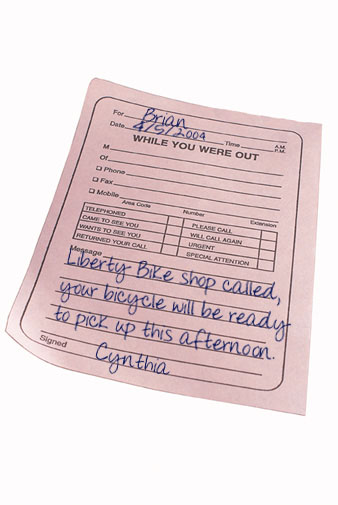 For Brian
Date 4/5/2004 Time A.M. P.M.
WHILE YOU WERE OUT
M
Of
Phone
Fax
Mobile
Area Code Number Extension
TELEPHONED PLEASE CALL
CAME TO SEE YOU WILL CALL AGAIN
WANTS TO SEE YOU URGENT
RETURNED YOUR CALL SPECIAL ATTENTION
Message
Liberty Bike shop called,
your bicycle will be ready
to pick up this afternoon.
Signed Cynthia